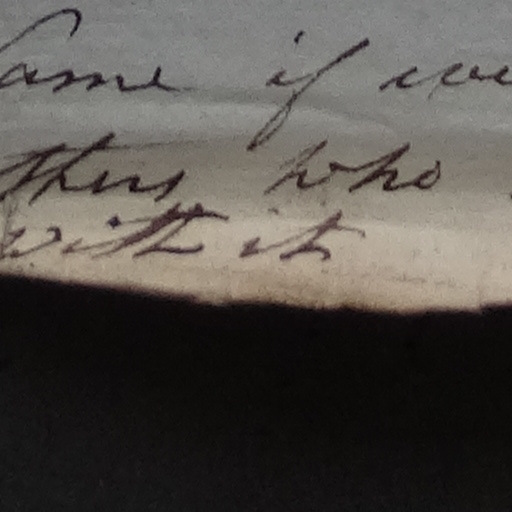 same if we
thers who
with it